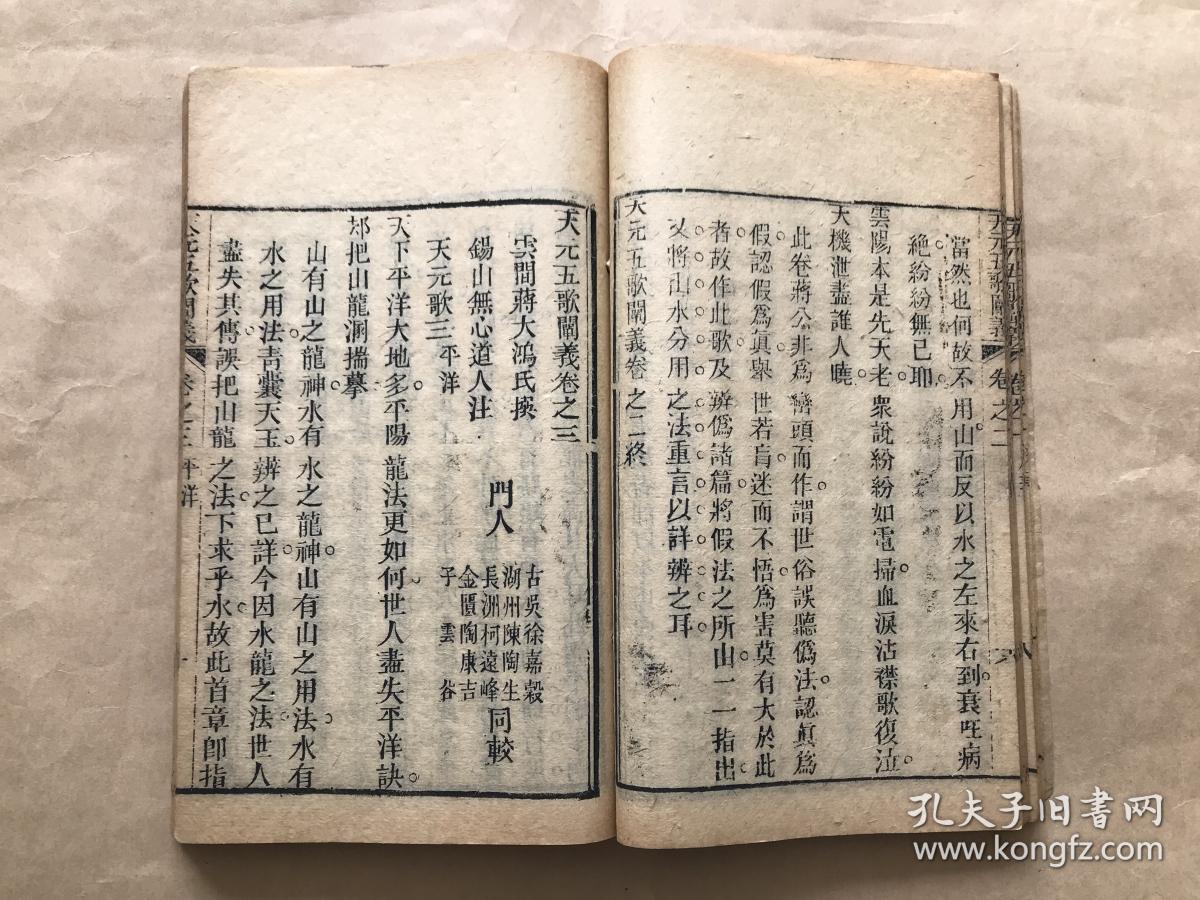 當然也何故不用山而反以水之左來右到衰旺病
絕紛紛無已耶
雲陽本是先天老衆說紛紛如電掃血淚沾襟歌復泣
天機泄盡誰人曉
此卷蔣公非爲巒頭而作謂世俗誤聽僞法認眞爲
假認假爲眞舉世若肓迷而不悟爲害莫有大於此
者故作此歌及辨僞諸篇將假法之所由一一指出
又將山水分用之法重言以詳辨之耳
天元五歌闡義卷之二終
天元五歌闡義卷之三
雲間蔣大鴻氏撰
錫山無心道人注
門人
古吳徐嘉穀
湖州陳陶生
長洲柯遠峰
金匱陶康吉
子雲谷
同較
天元歌三平洋
天下平洋大地多平陽龍法更如何世人盡失平洋訣
却把山龍溷揣摹
山有山之龍神水有水之龍神山有山之用法水有
水之用法靑囊天玉辨之已詳今因水龍之法世人
盡失其傳誤把山龍之法下求乎水故此首章卽指
天元五歌闡義
卷之三
平洋
一
天元五歌闡義
卷之二
八
孔夫子旧书网
www.kongfz.com